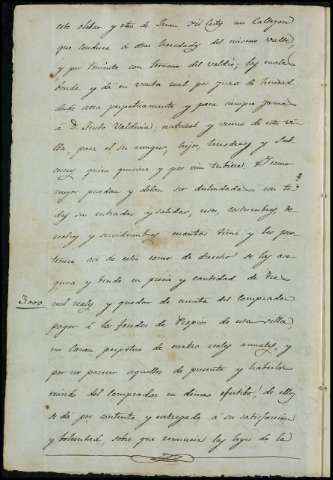 este ohdor y otra de Juan del Cid, un Callejon
que conduce á otra heredad del mismo Valdés,
y por Poniente con terreno del valdio; ley
vende, y dá en venta real por juro de heredad
desde ahora perpetuamente y para siempre jamas
á D. Justo Valdivia, natural y vecino de esta vi-
lla, para el su muger, hijos, herederos y sub-
cesores, quien quisiere y por vien tubiere. Y como
mejor puedan y deben ser deslindadas con to-
das sus entradas y salidas, usos, costumbres, de-
rechos y servidumbres cuantas tiene y les per-
tenece asi de echo como de derecho se las ase-
gura y vende en precio y cantidad de tres
3000 mil reales y quedar de cuenta del comprador
pagar á los fondos de Propios de esta villa
un Canon perpetuo de cuatro reales anuales, y
por no parecer aquellos de presente y haberlos
recivido del comprador en dinero efectibo; de ellos
se da por contento y entregado á su satisfaccion
y voluntad, sobre que renuncia las leyes de la